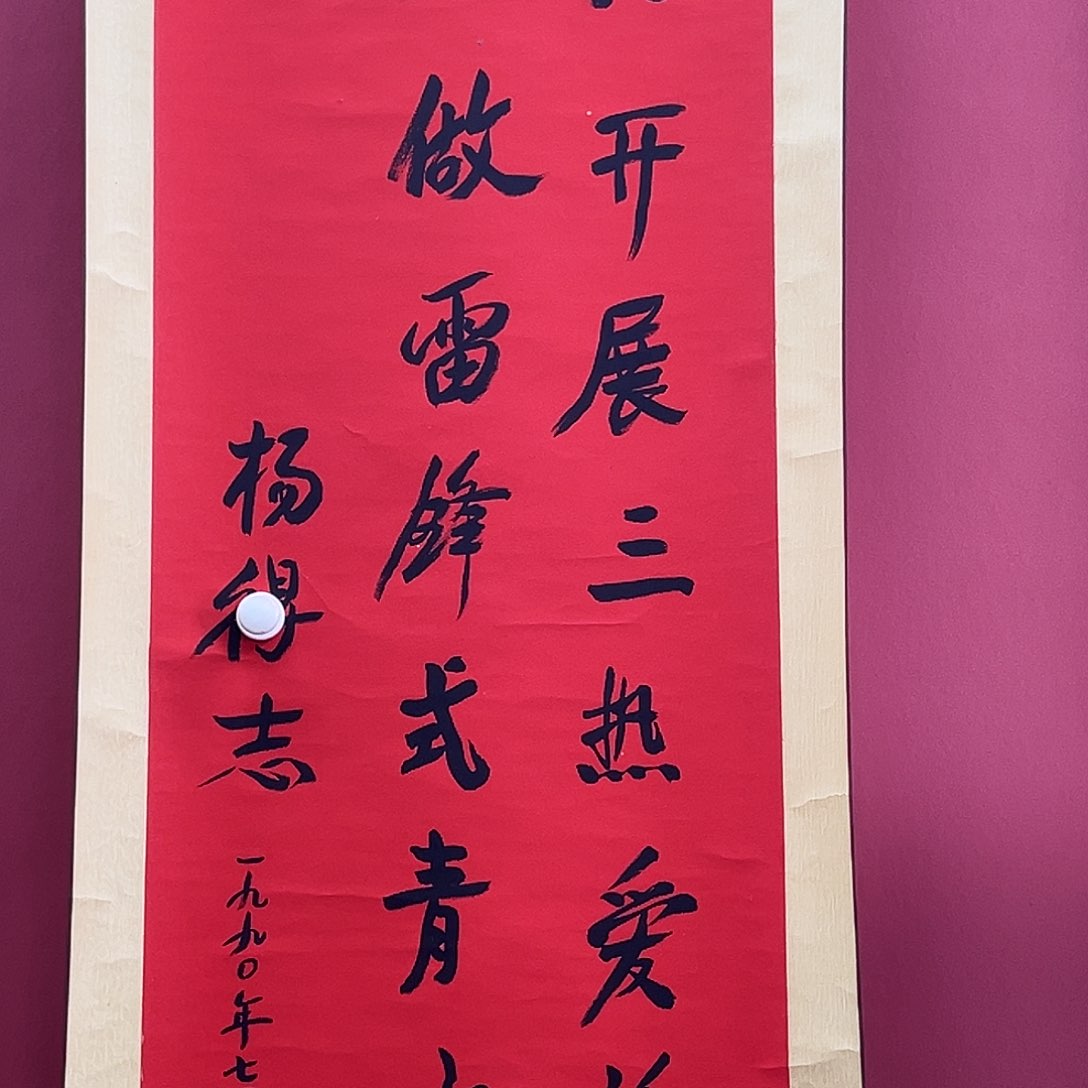 开展三热爱
做雷锋式青
杨得志
一九九〇年七